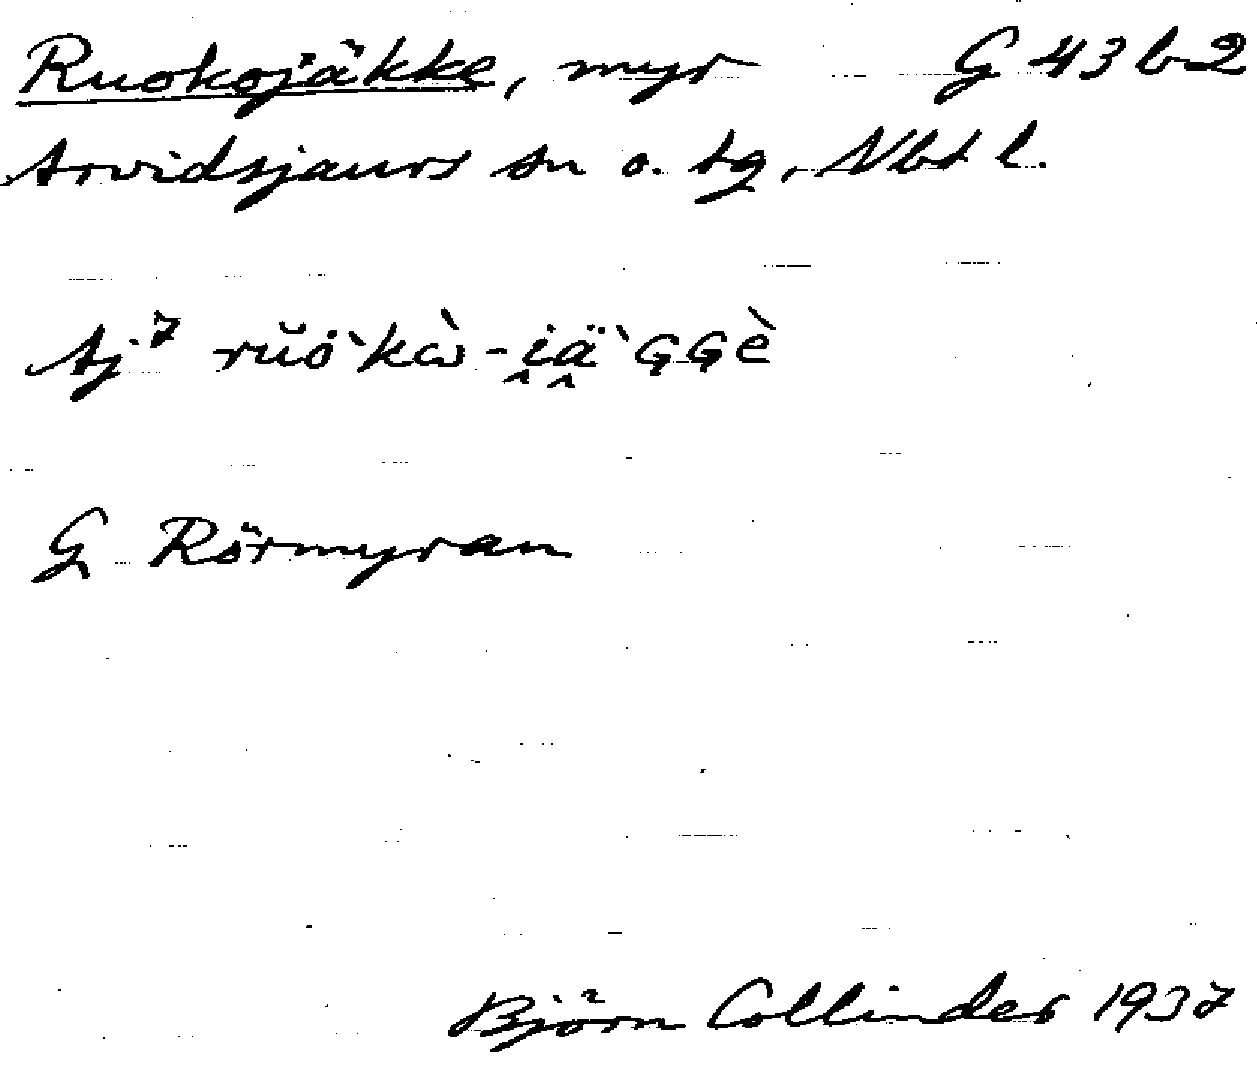 Ruokojäkke, myr G 43 b 2
Arvidsjaurs sn o. tg, Nbt l.
Aj 7 rŭȯ`kὼ-i̭ä̭`ɢɢè
G Rörmyran
Björn Collinder 1937